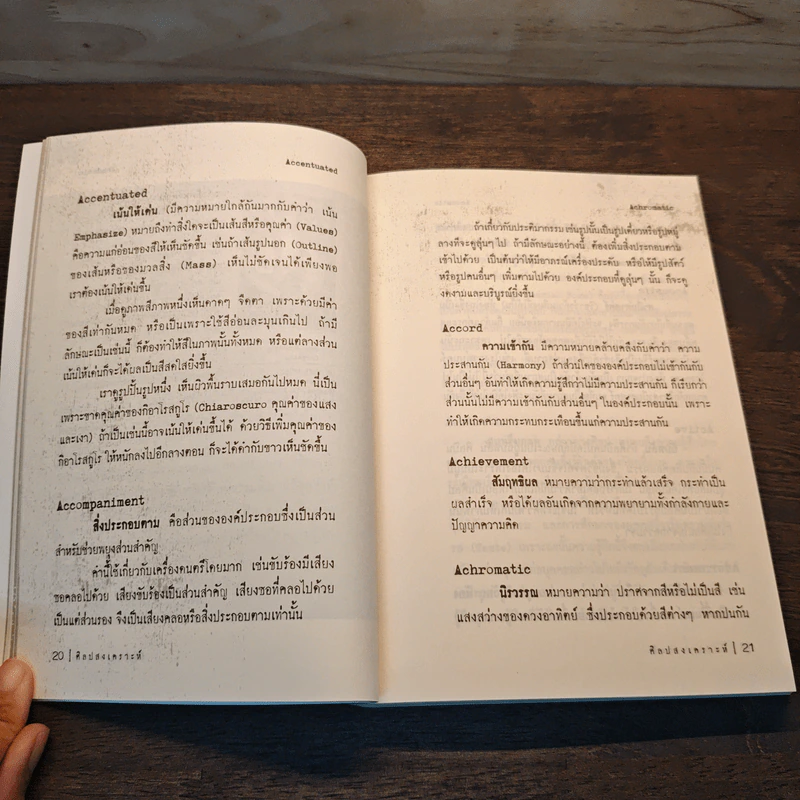 Accentuated
Accentuated
เน้นให้เด่น (มีความหมายใกล้กันมากกับคำว่า เน้น
Emphasize) หมายถึงทำสิ่งใดจะเป็นเส้นสีหรือคุณค่า (Values)
คือความแก่อ่อนของสีให้เห็นชัดขึ้น เช่นถ้าเส้นรูปนอก (Outline)
ของเส้นหรือของมวลสิ่ง (Mass) เห็นไม่ชัดเจนได้เพียงพอ
เราต้องเน้นให้เด่นขึ้น
เมื่อดูภาพสีภาพหนึ่งเห็นดาดๆ จืดตา เพราะด้วยมีค่า
ของสีเท่ากันหมด หรือเป็นเพราะใช้สีอ่อนละมุนเกินไป ถ้ามี
ลักษณะเป็นเช่นนี้ ก็ต้องทำให้สีในภาพนั้นทั้งหมด หรือแต่ลางส่วน
เน้นให้เด่นก็จะได้ผลเป็นสีสดใสยิ่งขึ้น
เราดูรูปปั้นรูปหนึ่ง เห็นผิวพื้นราบเสมอกันไปหมด นี่เป็น
เพราะขาดคุณค่าของกิอาโรสกูโร (Chiaroscuro คุณค่าของแสง
และเงา) ถ้าเป็นเช่นนี้อาจเน้นให้เด่นขึ้นได้ ด้วยวิธีเพิ่มคุณค่าของ
กิอาโรสกูโร ให้หนักลงไปอีกลางตอน ก็จะได้ดำกับขาวเห็นชัดขึ้น
Accompaniment
สิ่งประกอบตาม คือส่วนขององค์ประกอบซึ่งเป็นส่วน
สำหรับช่วยพยุงส่วนสำคัญ
คำนี้ใช้เกี่ยวกับเครื่องดนตรีโดยมาก เช่นขับร้องมีเสียง
ซอคลอไปด้วย เสียงขับร้องเป็นส่วนสำคัญ เสียงซอที่คลอไปด้วย
เป็นแต่ส่วนรอง จึงเป็นเสียงคลอหรือสิ่งประกอบตามเท่านั้น
20 | ศิลปสงเคราะห์
Achromatic
ถ้าเกี่ยวกับประติมากรรม เช่นรูปนั้นเป็นรูปเดี่ยวหรือรูปหมู่
ลางทีจะดูลุ่นๆ ไป ถ้ามีลักษณะอย่างนี้ ต้องเพิ่มสิ่งประกอบตาม
เข้าไปด้วย เป็นต้นว่าให้มีอาภรณ์เครื่องประดับ หรือให้มีรูปสัตว์
หรือรูปคนอื่นๆ เพิ่มตามไปด้วย องค์ประกอบที่ดูลุ่นๆ นั้น ก็จะดู
งดงามและบริบูรณ์ยิ่งขึ้น
Accord
ความเข้ากัน มีความหมายคล้ายคลึงกับคำว่า ความ
ประสานกัน (Harmony) ถ้าส่วนใดขององค์ประกอบไม่เข้ากันกับ
ส่วนอื่นๆ อันทำให้เกิดความรู้สึกว่าไม่มีความประสานกัน ก็เรียกว่า
ส่วนนั้นไม่มีความเข้ากันกับส่วนอื่นๆ ในองค์ประกอบนั้น เพราะ
ทำให้เกิดความกระทบกระเทือนขึ้นแก่ความประสานกัน
Achievement
สัมฤทธิผล หมายความว่ากระทำแล้วเสร็จ กระทำเป็น
ผลสำเร็จ หรือได้ผลอันเกิดจากความพยายามทั้งกำลังกายและ
ปัญญาความคิด
Achromatic
นิรวรรณ หมายความว่า ปราศจากสีหรือไม่เป็นสี เช่น
แสงสว่างของดวงอาทิตย์ ซึ่งประกอบด้วยสีต่างๆ หากปนกัน
ศิลปสงเคราะห์ | 21